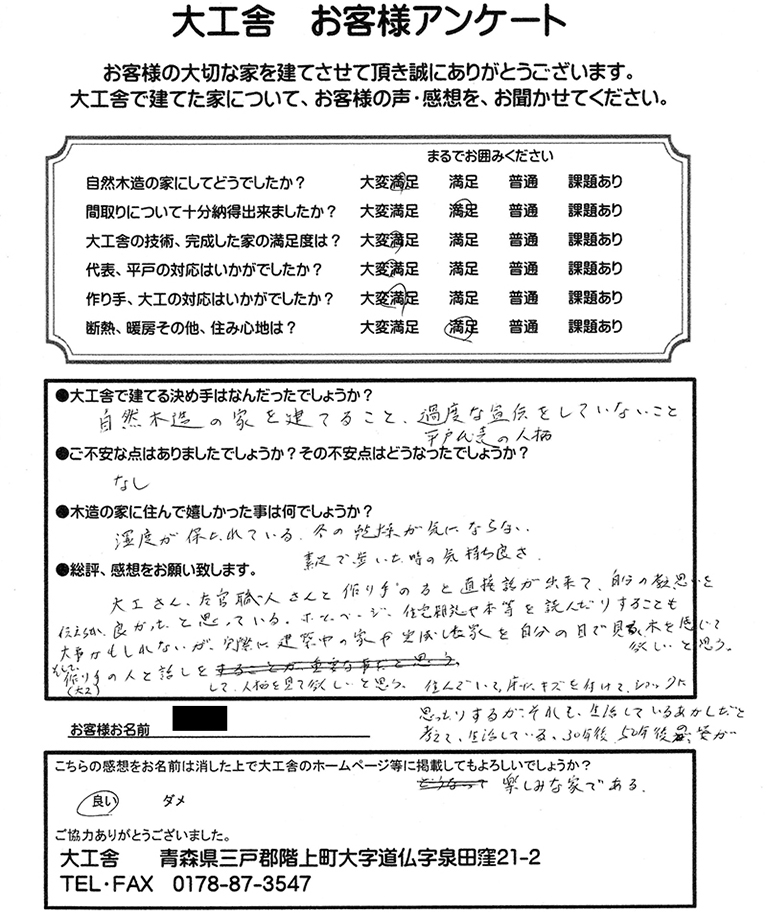 大工舎 お客様アンケート
お客様の大切な家を建てさせて頂き誠にありがとうございます。
大工舎で建てた家について、お客様の声・感想を、お聞かせてください。
まるでお囲みください
自然木造の家にしてどうでしたか? 大変満足 満足 普通 課題あり
間取りについて十分納得出来ましたか? 大変満足 満足 普通 課題あり
大工舎の技術、完成した家の満足度は? 大変満足 満足 普通 課題あり
代表、平戸の対応はいかがでしたか? 大変満足 満足 普通 課題あり
作り手、大工の対応はいかがでしたか? 大変満足 満足 普通 課題あり
断熱、暖房その他、住み心地は? 大変満足 満足 普通 課題あり
●大工舎で建てる決め手はなんだったでしょうか?
自然木造の家を建てること、過度な宣伝をしていないこと
平戸代表の人柄
●ご不安な点はありましたでしょうか?その不安点はどうなったでしょうか?
なし
●木造の家に住んで嬉しかった事は何でしょうか?
湿度が保たれている。冬の乾燥が気にならない。
素足で歩いた時の気持ち良さ。
●総評、感想をお願い致します。
大工さん、左官職人さんと作り手の と直接話が出来て、自分の 思いを
伝えられ、良かったと思っている。ホームページ、住宅雑誌や本等を読んだりすることも
大事かもしれないが、実際に建築中の家や完成した家を自分の目で見、木を感じて
欲しいと思う。
そして、作り手の人と話しをすることが重要な事だと思う。
(大工)
して、人柄を見て欲しいと思う。住んでいて、床にキズを付けて、ショックに
思ったりするが、それも、生活しているあかしだと
考えて、生活している。30年後、50年後の 姿が
どうなって 楽しみな家である。
お客様お名前
こちらの感想をお名前は消した上で大工舎のホームページ等に掲載してもよろしいでしょうか?
良い ダメ
ご協力ありがとうございました。
大工舎 青森県三戸郡階上町大字道仏字泉田窪21-2
TEL・FAX 0178-87-3547